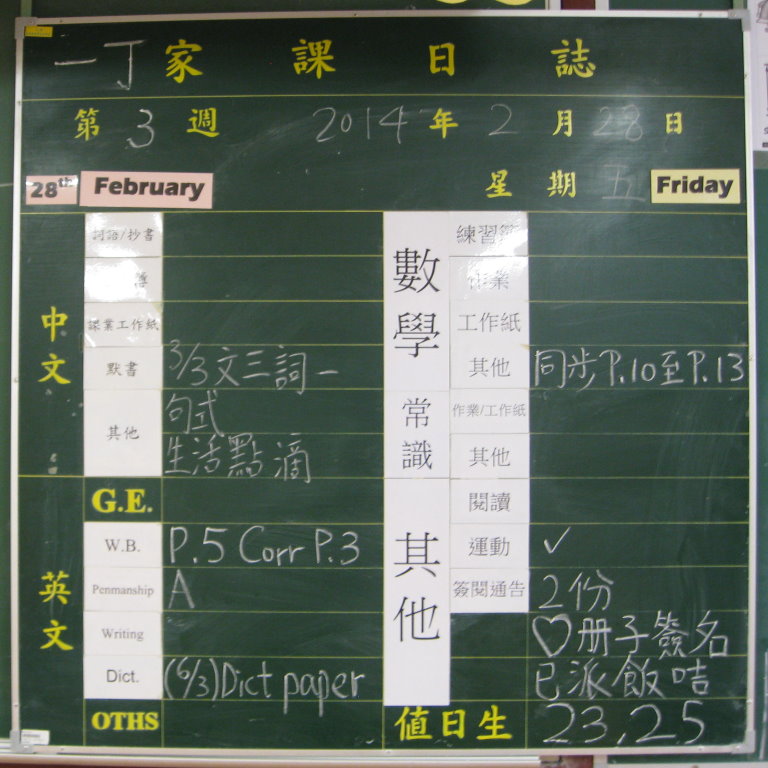 一丁家課日誌
第3週 2014年2月28日
28th February 星期五 Friday
中文
詞語/抄書
課業工作紙
默書 3/3文三詞一
其他 句式
生活點滴
英文
G.E.
W.B. P.5 Corr P.3
Penmanship A
Writing
Dict. (6/3)Dict paper
OTHS
數學
練習
作業
工作紙
其他 同步P.10至P.13
常識
作業/工作紙
其他
其他
閱讀
運動 ✓
簽閱通告 2份
♡册子簽名
已派飯咭
值日生 23,25